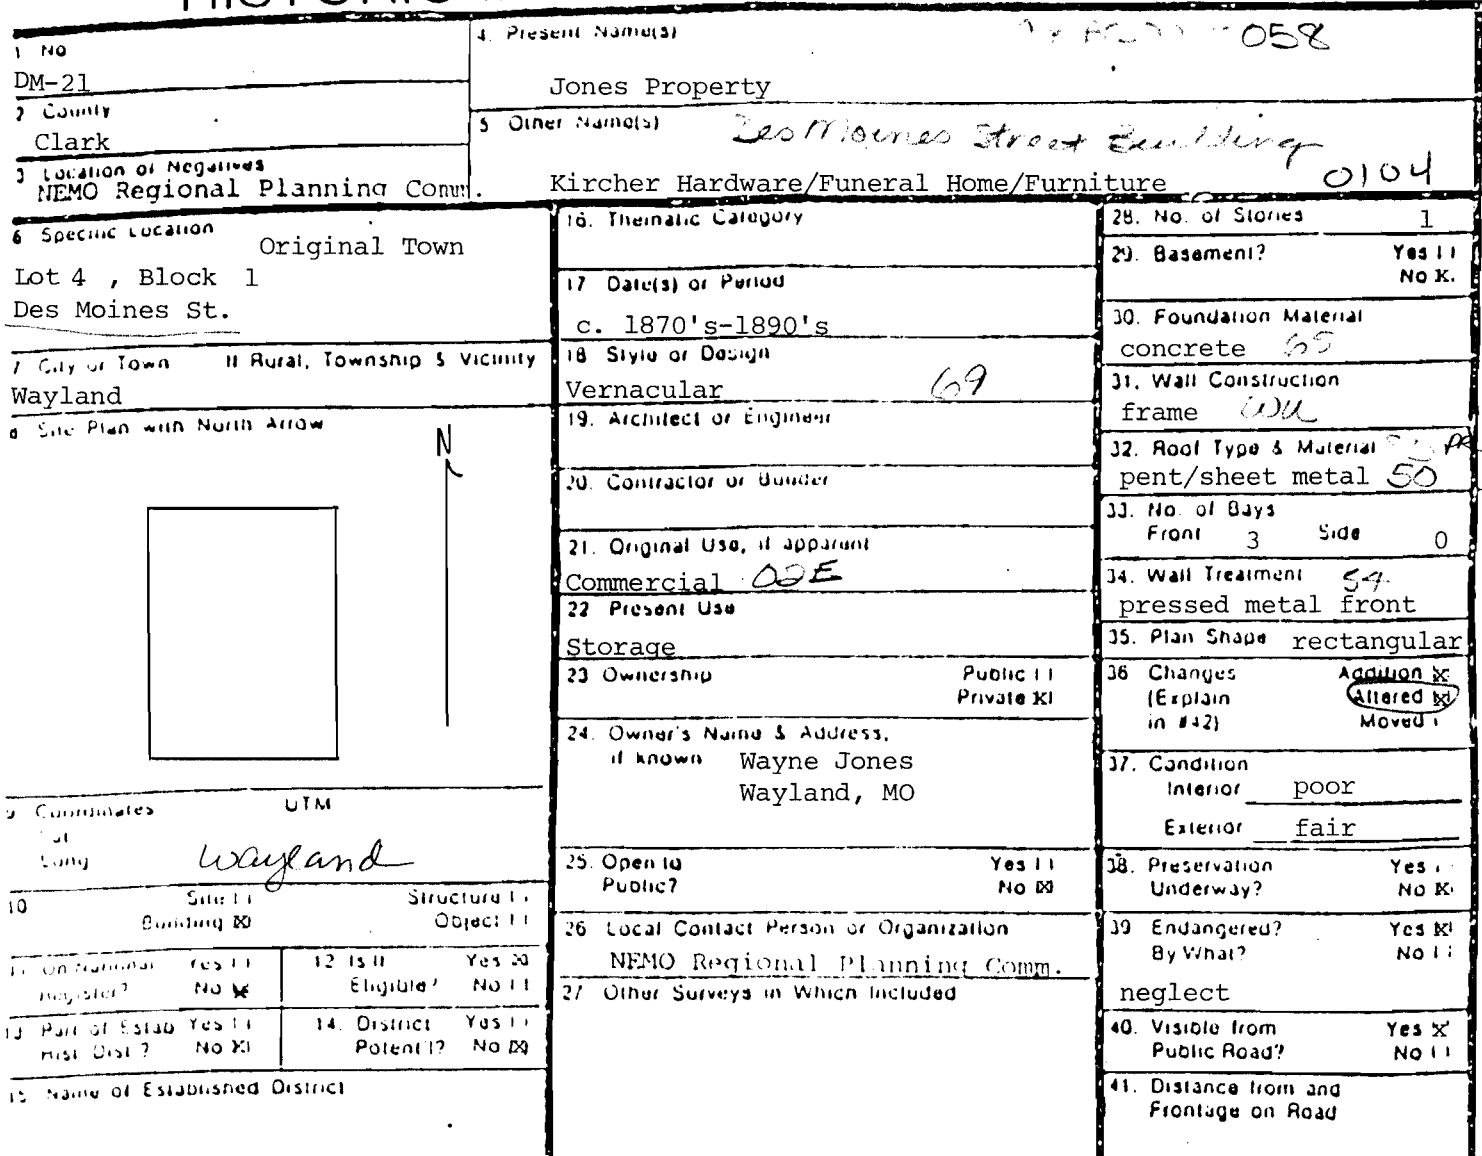 1 No
DM-21
2 County
Clark
3 Location of Negatives
NEMO Regional Planning Comm.
4. Present Name(s)
058
Jones Property
5 Other Name(s) Des Moines Street Building
Kircher Hardware/Funeral Home/Furniture 0104
6 Specific Location Original Town
Lot 4 , Block 1
Des Moines St.
7 City or Town If Rural, Township & Vicinity
Wayland
8 Site Plan with North Arrow
N
9 Coordinates UTM
Lat
Long
Wayland
10 Site [ ] Structure [ ]
Building [X] Object [ ]
11 On National Yes [ ]
Register? No [X]
12 Is It Yes [X]
Eligible? No [ ]
13 Part of Estab Yes [ ]
Hist. Dist.? No [X]
14. District Yes [ ]
Potent'l? No [X]
15 Name of Established District
16. Thematic Category
17 Date(s) or Period
c. 1870's-1890's
18 Style or Design
Vernacular 69
19. Architect or Engineer
20. Contractor or Builder
21. Original Use, if apparent
Commercial 02E
22 Present Use
Storage
23 Ownership Public [ ]
Private [X]
24. Owner's Name & Address,
if known Wayne Jones
Wayland, MO
25. Open to Yes [ ]
Public? No [X]
26 Local Contact Person or Organization
NEMO Regional Planning Comm.
27 Other Surveys in Which Included
28. No. of Stories 1
29. Basement? Yes [ ]
No [X]
30. Foundation Material
concrete 65
31. Wall Construction
frame WU
32. Roof Type & Material PR
pent/sheet metal 50
33. No. of Bays
Front 3 Side 0
34. Wall Treatment 54
pressed metal front
35. Plan Shape rectangular
36 Changes Addition [X]
(Explain Altered [X]
in #42) Moved [ ]
37. Condition
Interior poor
Exterior fair
38. Preservation Yes [ ]
Underway? No [X]
39 Endangered? Yes [X]
By What? No [ ]
neglect
40. Visible from Yes [X]
Public Road? No [ ]
41. Distance from and
Frontage on Road